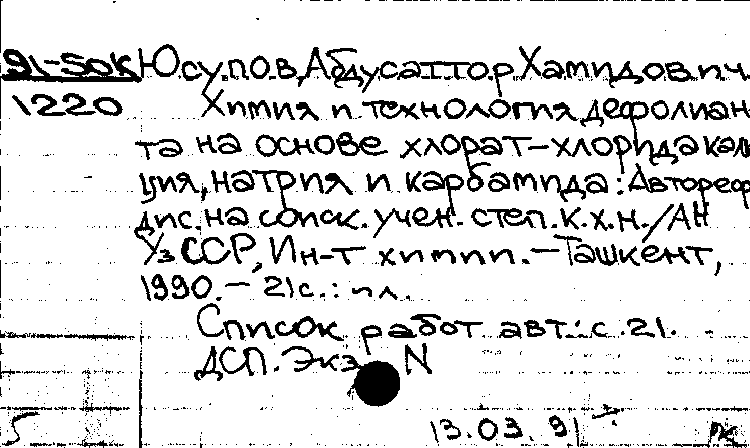 91-50к Юсупов, Абдусаттор Хамидович
1220 Химия и технология дефолиан
та на основе хлорат-хлорида каль
ция, натрия и карбамида: Автореф
дис. на соиск. учен. степ. к.х.н./АН
УзССР, Ин-т химии.-Ташкент,
1990.-21с.:ил.
Список работ авт.: с.21.
ДСП. Экз N
13.03.91